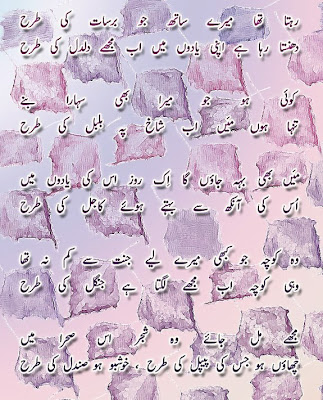 رہتا تھا میرے ساتھ جو برسات کی طرح
دھنستا رہا ہے اپنی یادوں میں اب مجھے دلدل کی طرح
کوئی ہو جو میرا بھی سہارا بنے
تنہا ہوں میں اب شاخ پہ بلبل کی طرح
میں بھی بہہ جاؤں گا اک روز اس کی یادوں میں
اُس کی آنکھ سے بہتے ہوئے کاجل کی طرح
وہ کوچہ جو کبھی میرے لیے جنت سے کم نہ تھا
وہی کوچہ اب مجھے لگتا ہے جنگل کی طرح
مجھے مل جائے وہ شجر اس صحرا میں
چھاؤں ہو جس کی پیپل کی طرح ، خوشبو ہو صندل کی طرح